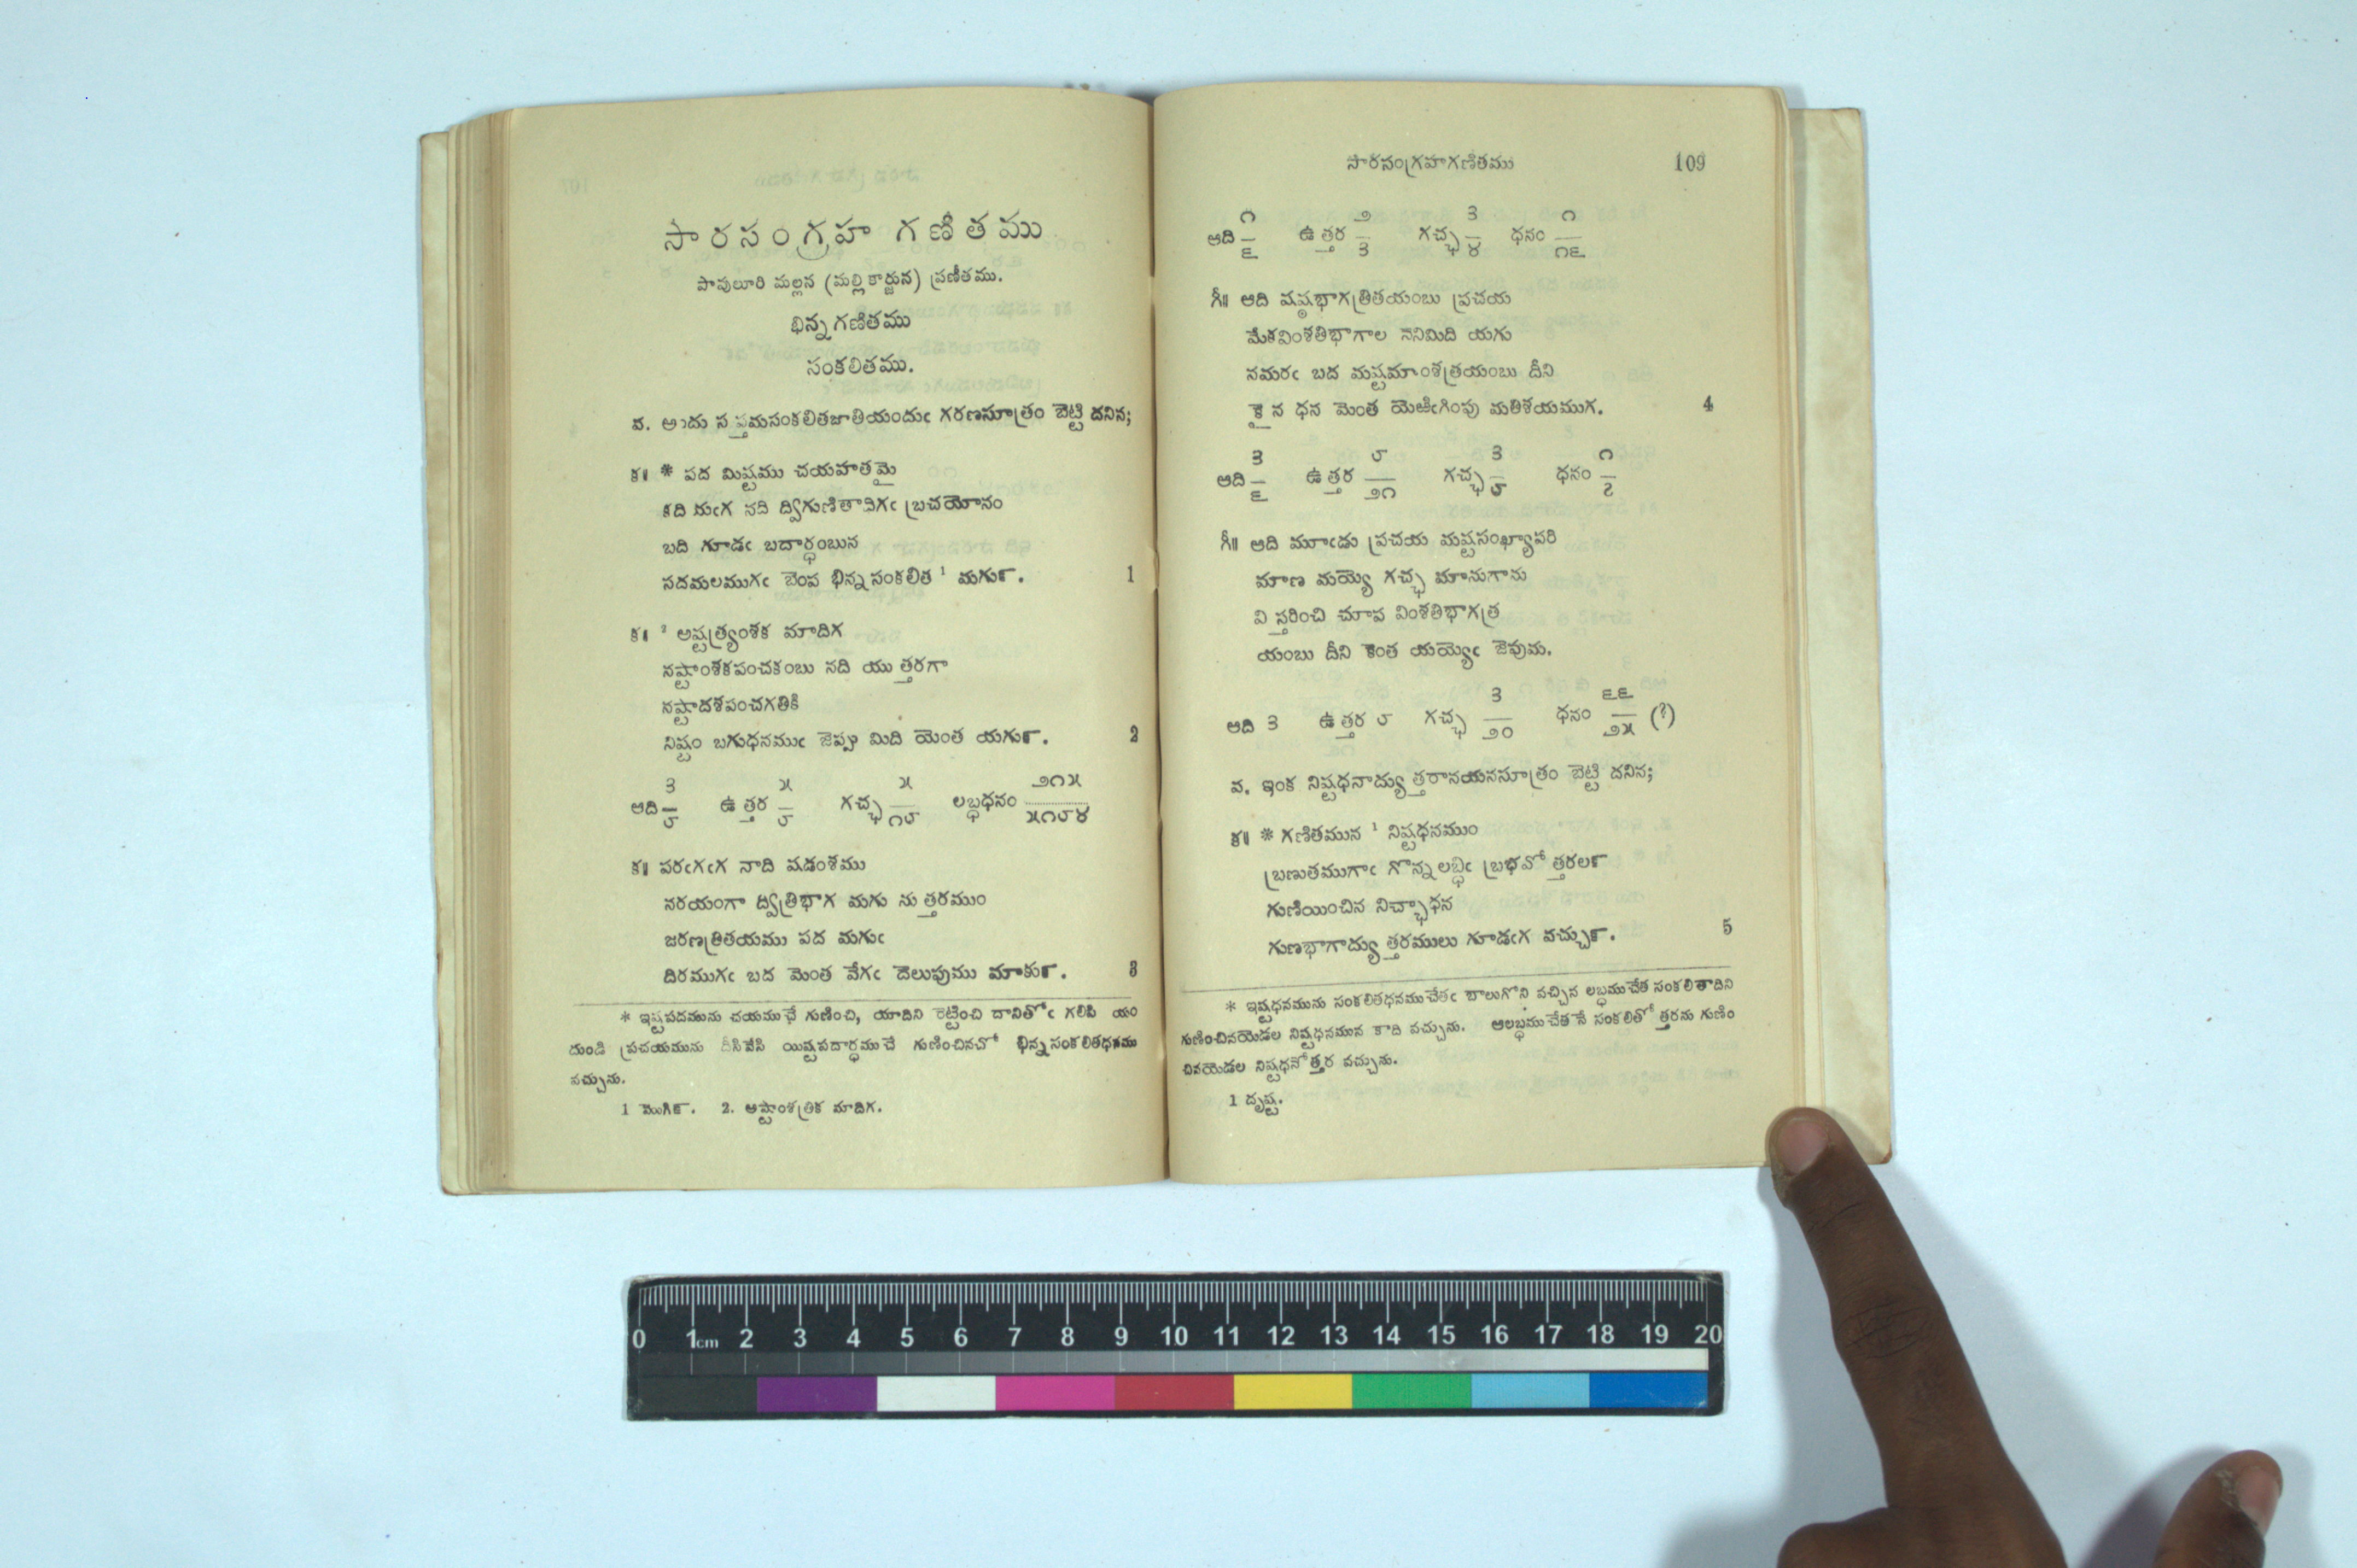 సారసంగ్రహ గణితము
పావులూరి మల్లన (మల్లికార్జున) ప్రణీతము.
భిన్నగణితము
సంకలితము.
వ. అందు సప్తమసంకలితజాతియందుఁ గరణసూత్రం బెట్టి దనిన;
క॥ * పద మిష్టము చయహతమై
నది ద్విగుణితాదిగఁ బ్రచయోనం
బది గూడఁ బదార్ధంబున
సదమలముగఁ బెంప భిన్నసంకలిత¹ మగున్. 1
క॥ ² అష్టత్ర్యంశక మాదిగ
నష్టాంశకపంచకంబు నది యుత్తరగా
నష్టాదశపంచగతికి
నిష్టం బగుధనముఁ జెప్పు మిది యెంత యగున్. 2
ఆది ౩/౮ ఉత్తర ౫/౮ గచ్ఛ ౫/౧౮ లబ్ధధనం ౨౧౫/౫౧౮౪
క॥ పరఁగఁగ నాది షడంశము
నరయంగా ద్విత్రిభాగ మగు నుత్తరముం
జరణత్రితయము పద మగుఁ
దిరముగఁ బద మెంత వేగఁ దెలుపుము మాకున్. 3
* ఇష్టపదమును చయముచే గుణించి, యాదిని రెట్టించి దానితోఁ గలిపి యం
దుండి ప్రచయమును తీసివేసి యిష్టపదార్ధముచే గుణించినచో భిన్నసంకలితధనము
వచ్చును.
1 మొగిన్. 2. అష్టాంశత్రిక మాదిగ.
సారసంగ్రహగణితము 109
ఆది ౧/౬ ఉత్తర ౨/౩ గచ్ఛ ౩/౪ ధనం ౧/౧౬
గీ॥ ఆది షష్ఠభాగత్రితయంబు ప్రచయ
మేకవింశతిభాగాల నెనిమిది యగు
నమరఁ బద మష్టమాంశత్రయంబు దీని
కైన ధన మెంత యెఱిఁగింపు మతిశయముగ. 4
ఆది ౩/౬ ఉత్తర ౮/౨౧ గచ్ఛ ౩/౮ ధనం ౧/౭
గీ॥ ఆది మూఁడు ప్రచయ మష్టసంఖ్యాపరి
మాణ మయ్యె గచ్ఛ మానుగాను
విస్తరించి చూప వింశతిభాగత్ర
యంబు దీని కెంత యయ్యెఁ జెపుమ.
ఆది ౩ ఉత్తర ౮ గచ్ఛ ౩/౨౦ ధనం ౬౬/౨౫ (?)
వ. ఇంక నిష్టధనాద్యుత్తరానయనసూత్రం బెట్టి దనిన;
క॥ * గణితమున ¹ నిష్టధనముం
బ్రణుతముగాఁ గొన్నలబ్ధిఁ బ్రభవోత్తరలన్
గుణియించిన నిచ్ఛాధన
గుణభాగాద్యుత్తరములు గూడఁగ వచ్చున్. 5
* ఇష్టధనమును సంకలితధనముచేతఁ బాలుగొని వచ్చిన లబ్ధముచేత సంకలితాదిని
గుణించినయెడల నిష్టధనమున కాది వచ్చును. ఆలబ్ధముచేతనే సంకలితోత్తరను గుణిం
చినయెడల నిష్టధనోత్తర వచ్చును.
1 దృష్ట.
0 1cm 2 3 4 5 6 7 8 9 10 11 12 13 14 15 16 17 18 19 20